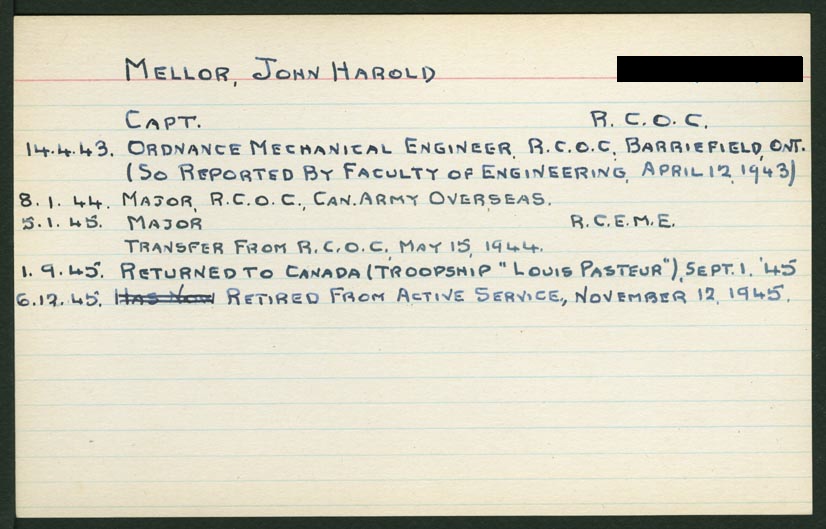 MELLOR, JOHN HAROLD
CAPT. R.C.O.C.
14.4.43. ORDNANCE MECHANICAL ENGINEER, R.C.O.C, BARRIEFIELD, ONT.
(SO REPORTED BY FACULTY OF ENGINEERING, APRIL 12, 1943)
8.1.44. MAJOR, R.C.O.C., CAN. ARMY OVERSEAS.
5.1.45. MAJOR R.C.E.M.E.
TRANSFER FROM R.C.O.C, MAY 15, 1944.
1.9.45. RETURNED TO CANADA (TROOPSHIP "LOUIS PASTEUR"), SEPT. 1. '45
6.12.45. HAS NOW RETIRED FROM ACTIVE SERVICE, NOVEMBER 12, 1945.